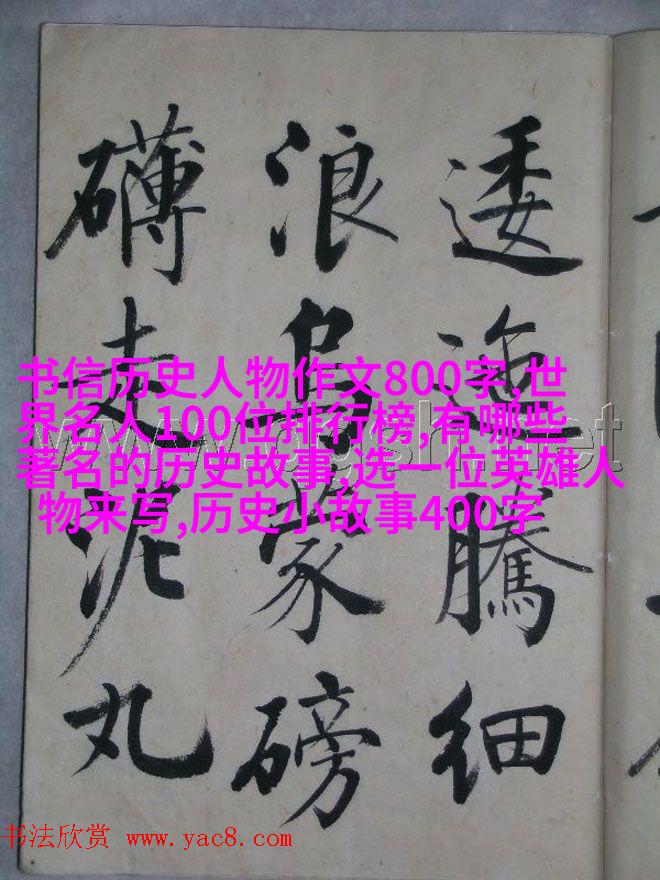 逶迤騰細
浪烏蒙磅
礴走泥丸
书信历史人物作文800字,世
界名人100位排行榜,有哪些
著名的历史故事,选一位英雄人
物来写,历史小故事400字
书法欣赏 www.yac8.com